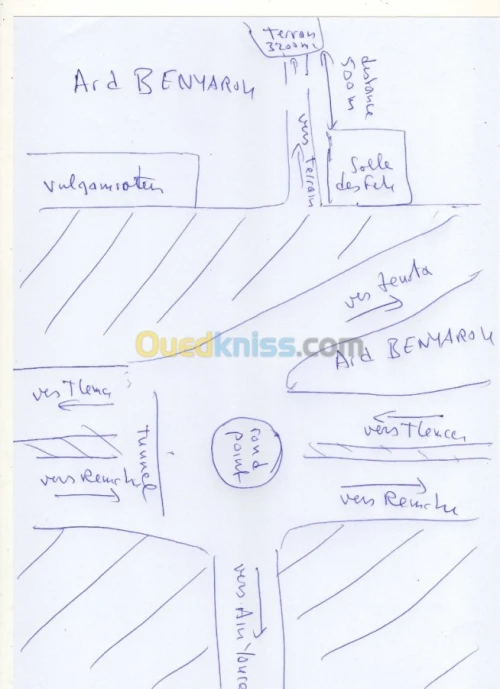 Terrain
3200m
Ard BENYAROU
distance
500m
vers Terrain
Vulganisateur
Salle
des Fete
vers
Ouedkniss.com
Ard BENYAROU
vers Tlemc
Tunnel
rond
point
vers Tlemcen
vers Remchi
vers Remchi
vers Ain